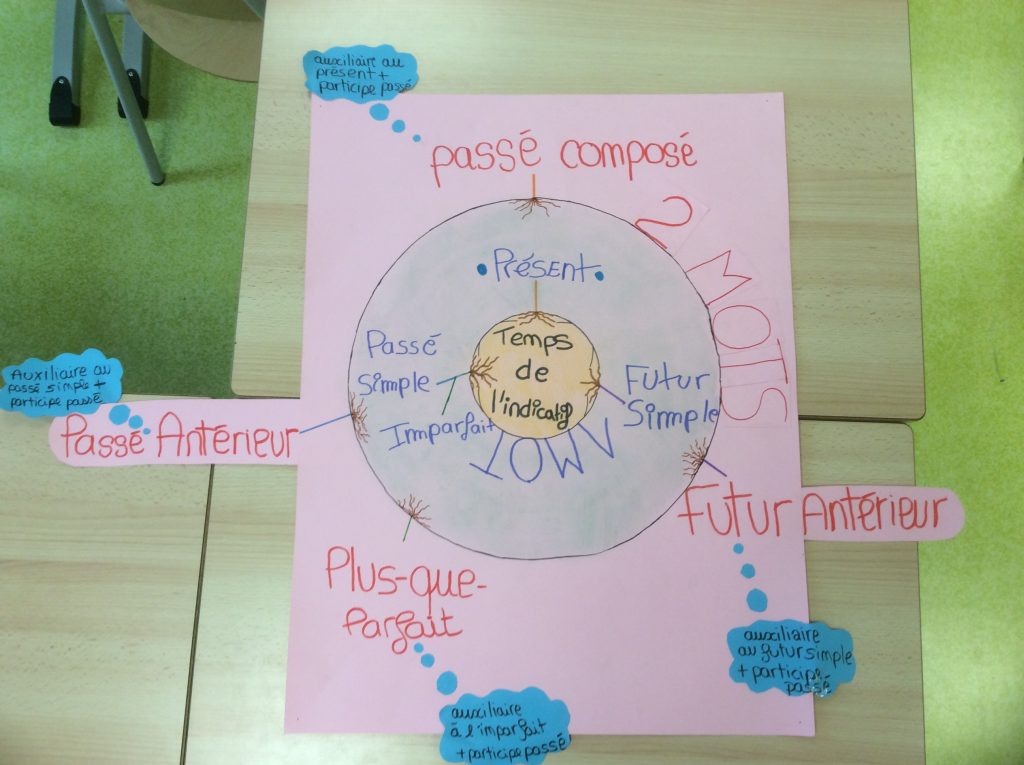 auxiliaire au
présent +
participe passé
passé composé
2 MOTS
Présent
Temps
de
l'indicatif
Passé
simple
Imparfait
Futur
Simmple
1 MOT
Auxiliaire au
passé simple +
participe passé
Passé Antérieur
Futur Antérieur
Plus-que-
Parfait
auxiliaire
au futur simple
+ participe
passé
auxiliaire
à l'imparfait
+ participe passé